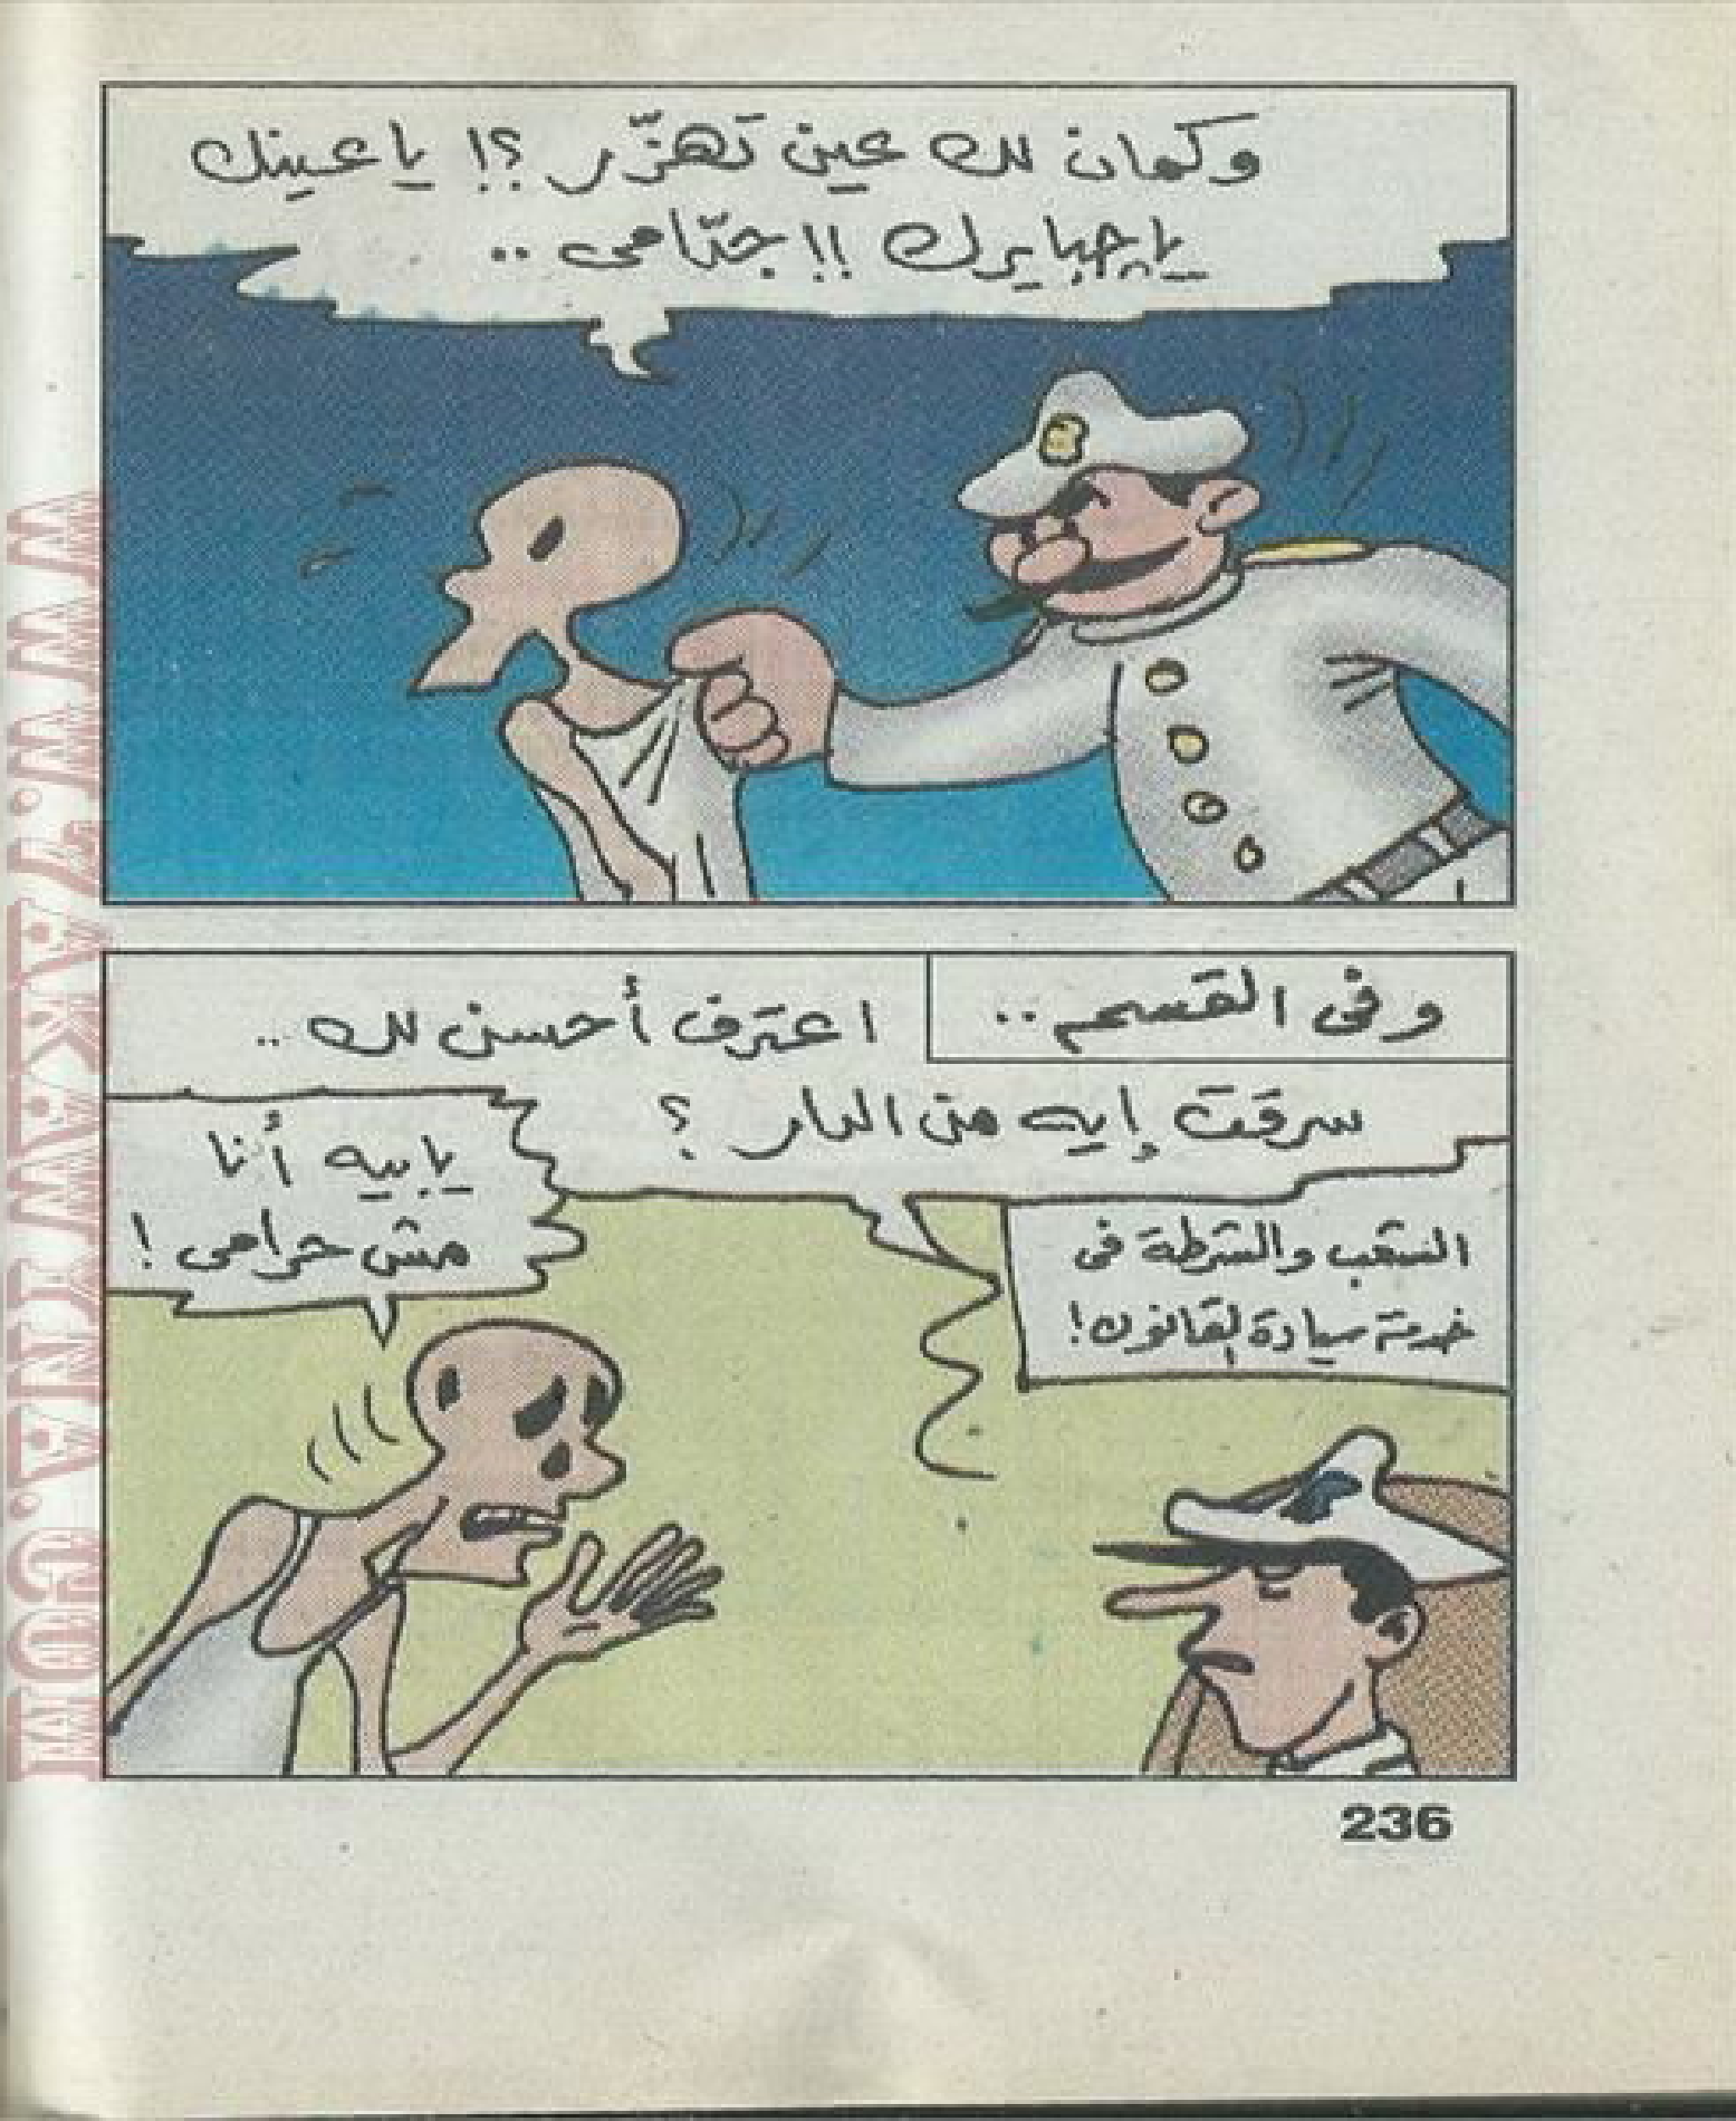 وكمان لك عين تهزّر ؟! ياعينك
ياجبايرك !! جتّامى ..
وفى القسم ..
اعترف أحسن لك ..
سرقت إيه من الدار ؟
يابيه أنا
مش حرامى !
الشعب والشرطة فى
خدمة سيادة القانون !
236
WWW.7AKAWINA.COM